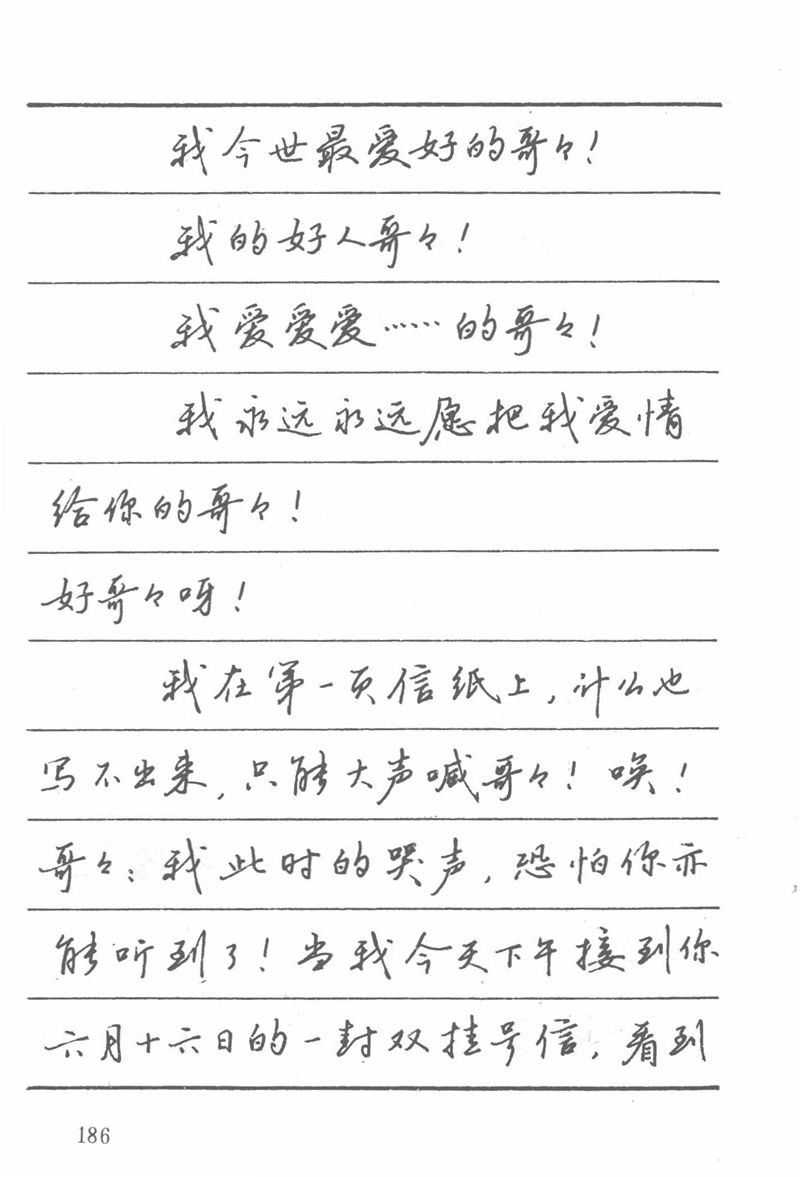 我今世最爱好的哥々!
我的好人哥々!
我爱爱爱……的哥々!
我永远永远愿把我爱情
给你的哥々!
好哥々呀!
我在第一页信纸上,什么也
写不出来,只能大声喊哥々!唤!
哥々:我此时的哭声,恐怕你亦
能听到了!当我今天下午接到你
六月十六日的一封双挂号信,看到
186